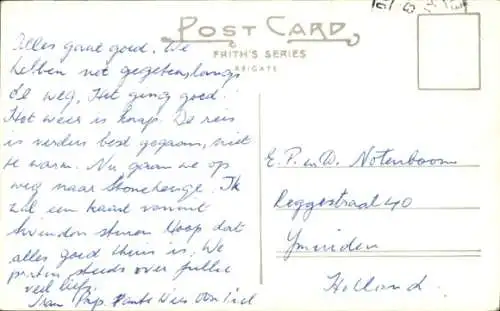 POST CARD
FRITH'S SERIES
REIGATE
Alles gaat goed. We
hebben net gegeten, langs
de weg. Het ging goed.
Het weer is knap. De reis
is verders best gegaan, niet
te warm. Nu gaan we op
weg naar Stonehenge. Ik
zal een kaart vanuit
Swindon sturen. Hoop dat
alles goed thuis is. We
praten steeds over jullie
veel liefs,
Pap, Tante Wies
E. P. en D. Notenboom
Reggestraat 40
Ymuiden
Holland.